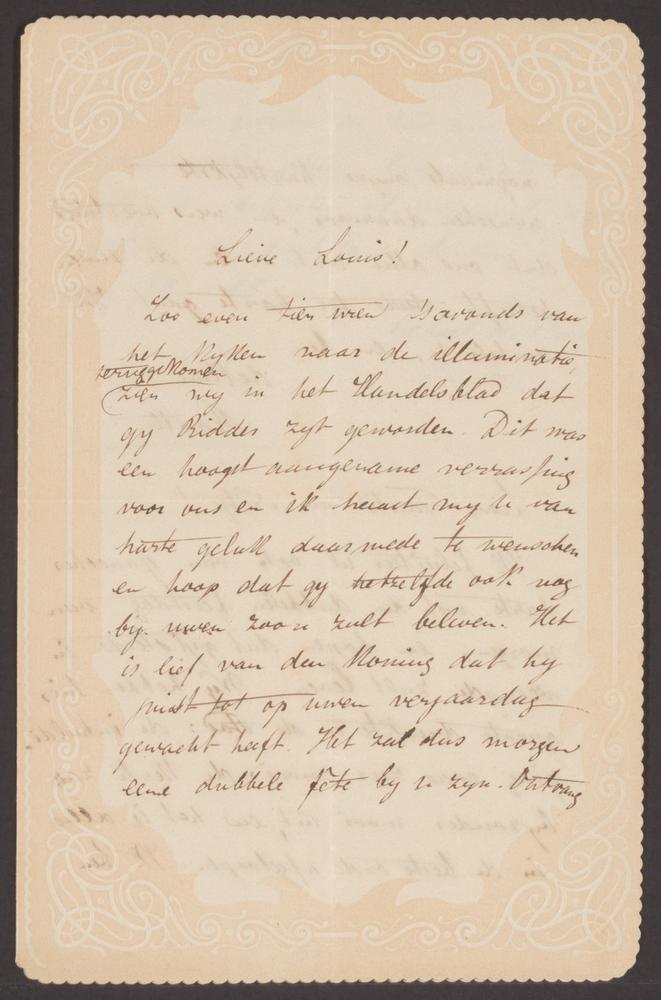 Lieve Louis!
Zoo even tien uren 's avonds van
het kijken naar de illuminatie,
teruggekomen
zien wij in het Handelsblad dat
gij Ridder zijt geworden. Dit was
een hoogst aangename verrassing
voor ons en ik haast mij u van
harte geluk daarmede te wenschen
en hoop dat gij hetzelfde ook nog
bij uwen zoon zult beleven. Het
is lief van den Koning dat hij
juist tot op uwen verjaardag
gewacht heeft. Het zal dus morgen
eene dubbele fête bij u zijn. Ontvang